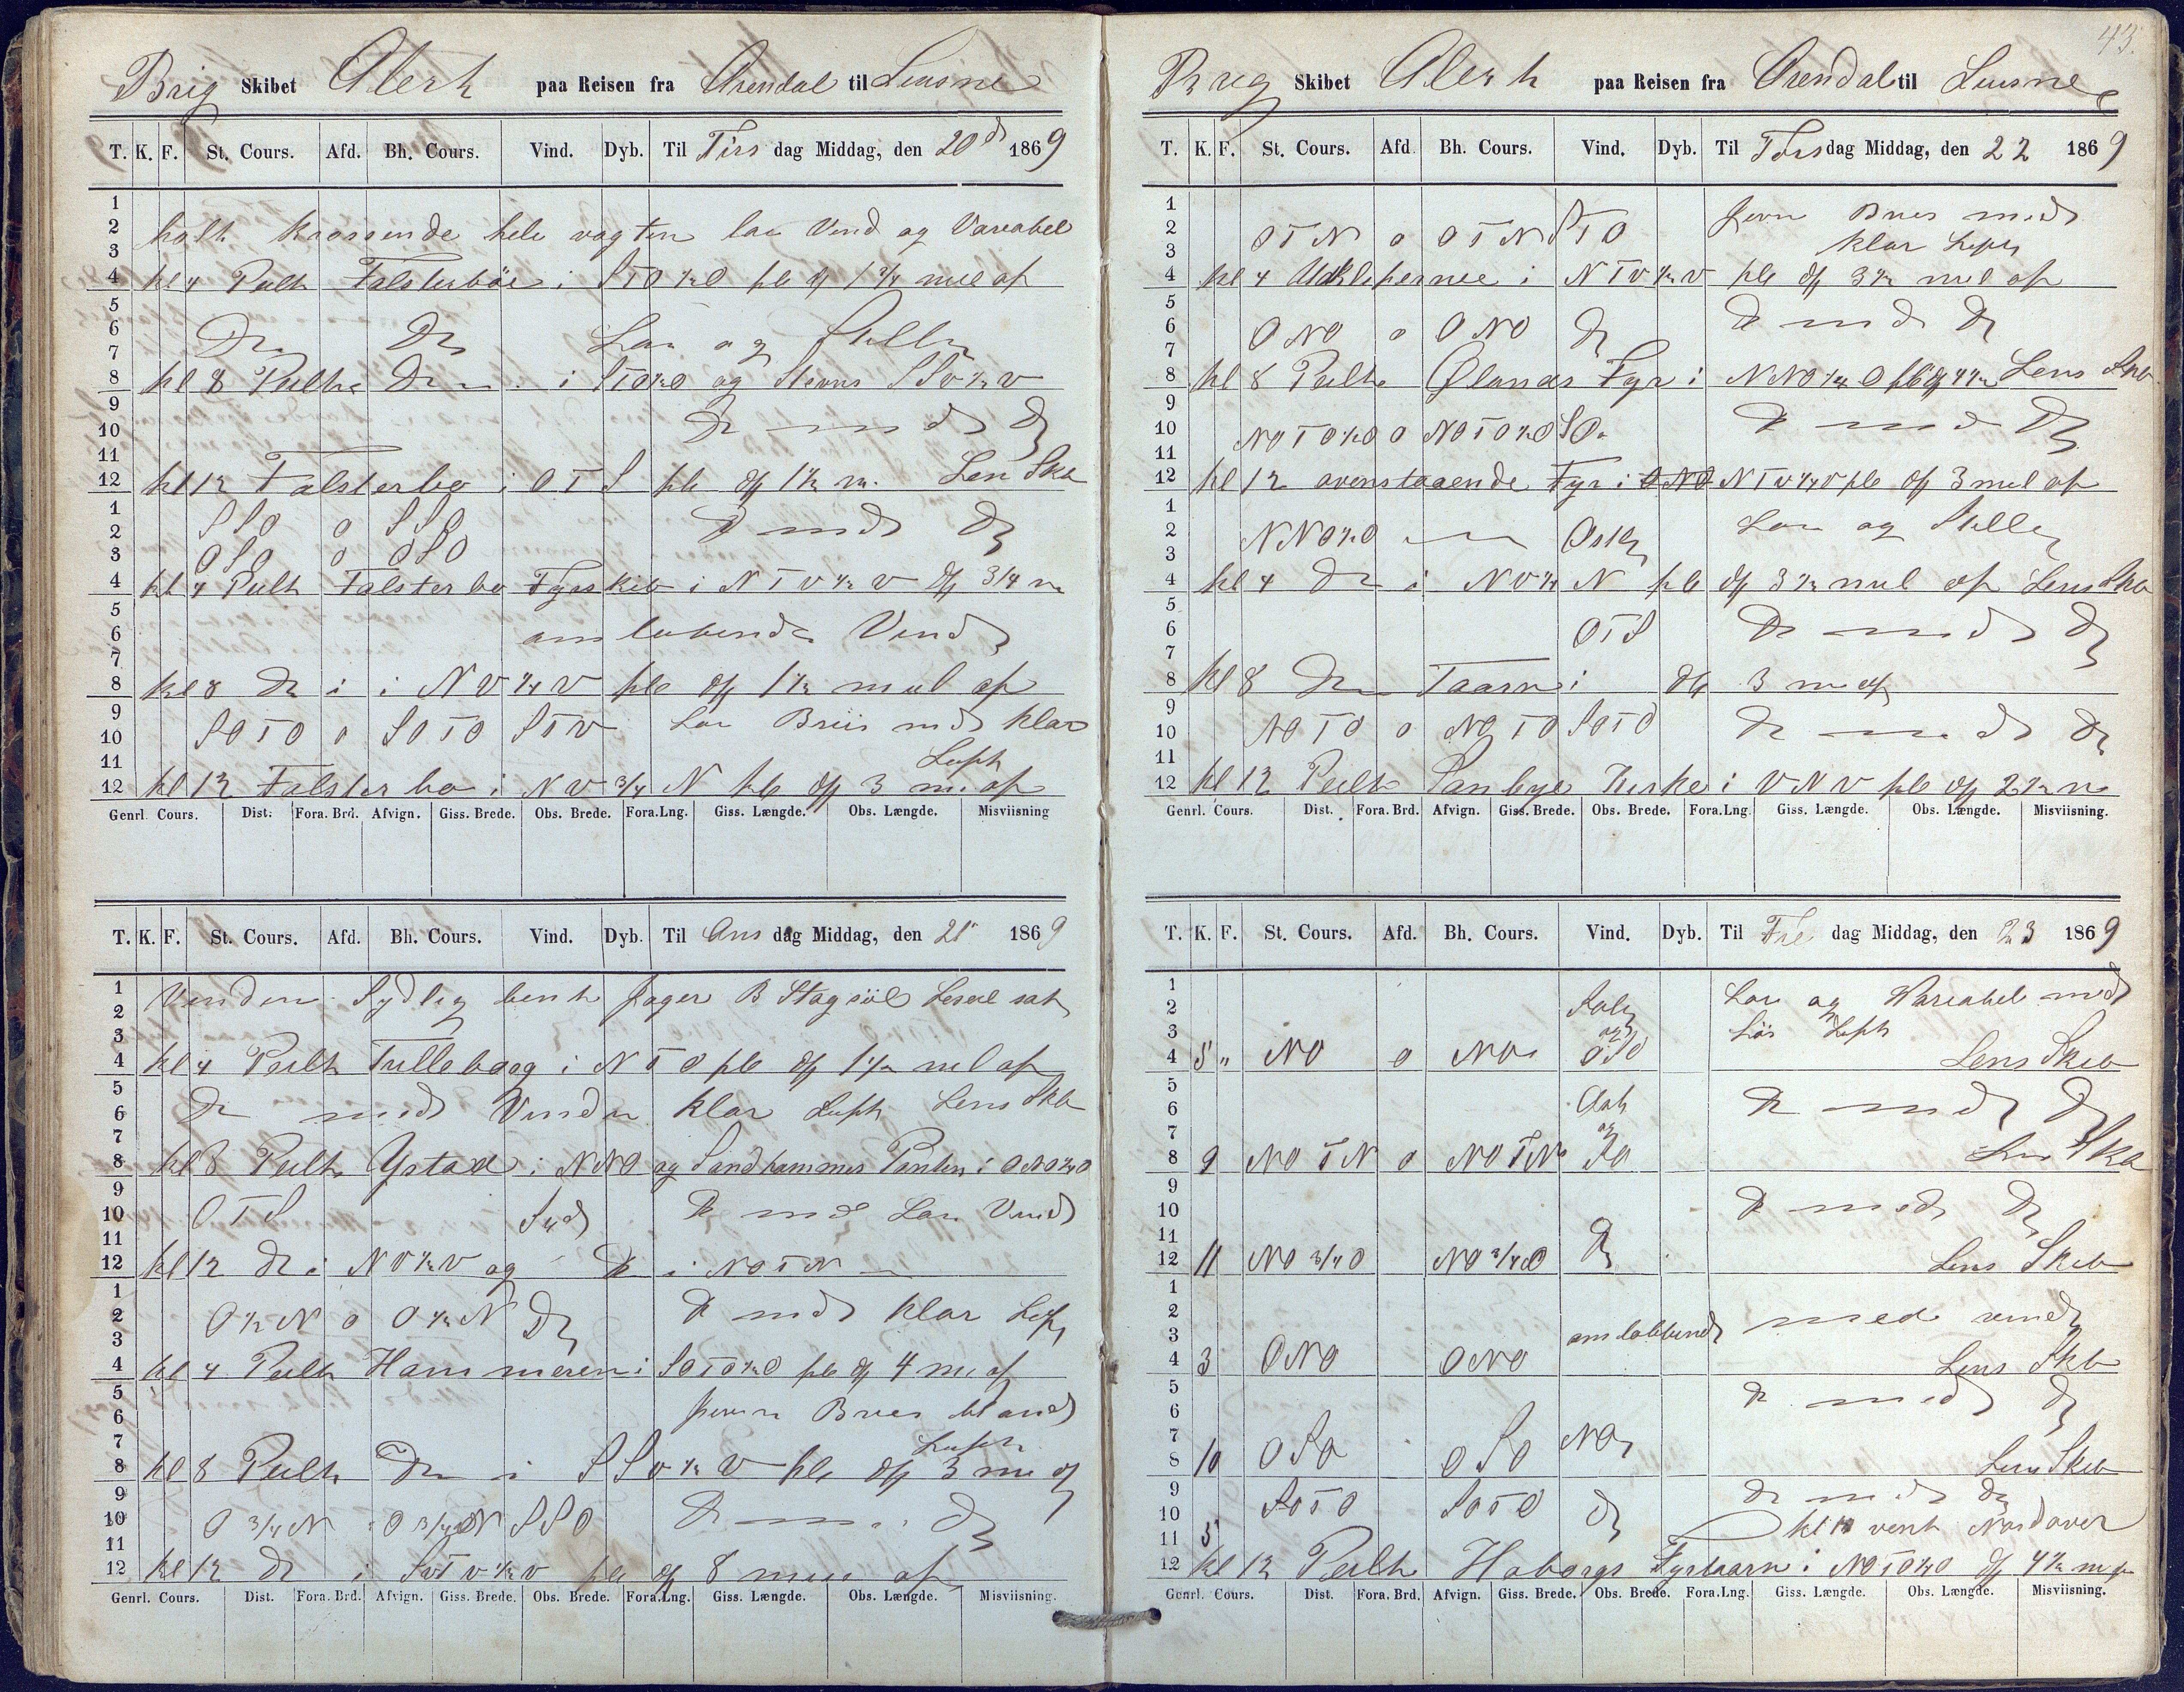 Brig Skibet Alert paa Reisen fra Arendal til Liusne
T. K. F. St. Cours. Afd. Bh. Cours. Vind. Dyb. Til Tirs dag Middag, den 20d 1869
1
2 holt Krossende hele vagten lav Vind og Variabel
3
4 kl 4 Peilt Falsterböe i STO½O pb df 1¾ miil af
5
6 Do Do Lav og Stille
7
8 kl 8 Peilte Do i STO½O og Stevns SSV½V
9
10 Do med Do
11
12 kl 12 Falsterbo i OTS pb df 1½ m. Len Skb
1 SSO o SSO
2 Do med Do
3 OSO o OSO
4 kl 4 Peilt Falsterbo Fyrskib i NTV½V df 3/4 m
5
6 omløbende Vind
7
8 kl 8 Do i i NV¼V pb df 1½ miil af
9
10 SOTO o SOTO STV Lav Briis med klar
11 Luft
12 kl 12 Falsterbo i NV¾N pb df 3 m. af
Genrl. Cours. Dist. Fora. Brd. Afvign. Giss. Brede. Obs. Brede. Fora.Lng. Giss. Længde. Obs. Længde. Misviisning
T. K. F. St. Cours. Afd. Bh. Cours. Vind. Dyb. Til Ons dag Middag, den 21 1869
1 Vinden Sydlig bent Jager B Stagseil Leseil sat
2
3
4 kl 4 Peilt Trilleborg i NTO pb df 1½ mil af
5
6 Do med Vinden klar Luft Lens Skb
7
8 kl 8 Peilt Ystad i NNO og Sandhammer Pynten i ONO½O
9
10 OTS Syd Do med Lav Vind
11
12 kl 12 Do i NV½V og Do i NOTN
1
2 O½N o O½N Do Do med klar Luft
3
4 kl 4 Peilt Hammeren i SOTO½O pb df 4 m. af
5
6 jevn Bries bland
7 Luft
8 kl 8 Peilt Do i SSV½V pb df 3 m af
9
10 O¾N O¾N SSO Do Do
11
12 kl 12 Do i SVTV½V pb df 8 mill af
Genrl. Cours. Dist. Fora. Brd. Afvign. Giss. Brede. Obs. Brede. Fora.Lng. Giss. Længde. Obs. Længde. Misviisning.
43.
Brig Skibet Alert paa Reisen fra Arendal til Liusne
T. K. F. St. Cours. Afd. Bh. Cours. Vind. Dyb. Til Tors dag Middag, den 22 1869
1
2 OTN o OTN STO jevn Bries med
3 klar Luft
4 kl 4 Udklipernee i NTV½V pb df 3½ mil af
5
6 ONO o ONO Do Do med Do
7
8 kl 8 Peilte Ølands Fyr i NNO¼O pb df 4½ Lens Skb
9
10 NOTO½O o NOTO½O SO. Do med Do
11
12 kl 12 ovenstaaende Fyr i NTV¼V pb df 3 mil af
1
2 NNO½O Ost Lav og Stille
3
4 kl 4 Do i NV½N pb df 3½ miil af Lens Skb
5
6 OTS Do med Do
7
8 kl 8 Do Taarn i df 3 m af
9
10 NOTO o NOTO SOTO Do med Do
11
12 kl 12 Peilt Sanbye Kirke i VNV pb df 2½ m
Genrl. Cours. Dist. Fora. Brd. Afvign. Giss. Brede. Obs. Brede. Fora.Lng. Giss. Længde. Obs. Længde. Misviisning.
T. K. F. St. Cours. Afd. Bh. Cours. Vind. Dyb. Til Fre dag Middag, den 23 1869
1 Lav og Variabel med
2
3 og Luft
4 5 " NO o NO OSO Lens Skib
5
6 Do med Do
7 og
8 9 NOTN o NOTN SO Len Skb
9
10 Do med Do
11
12 11 NO¾O NO¾O Do Lens Skib
1
2
3 omløbende med vind
4 3 ONO ONO Lens Skb
5 Do med Do
6
7
8 10 OSO OSO NO Lens Skib
9 SOTO SOTO Do Do med Do
10
11 5 kl 11 vent Nordover
12 kl 12 Peilt Hoborgs Fyrtaarn i NOTO½O df 4½ m af
Genrl. Cours. Dist. Fora. Brd. Afvign. Giss. Brede. Obs. Brede. Fora.Lng. Giss. Længde. Obs. Længde. Misviisning.